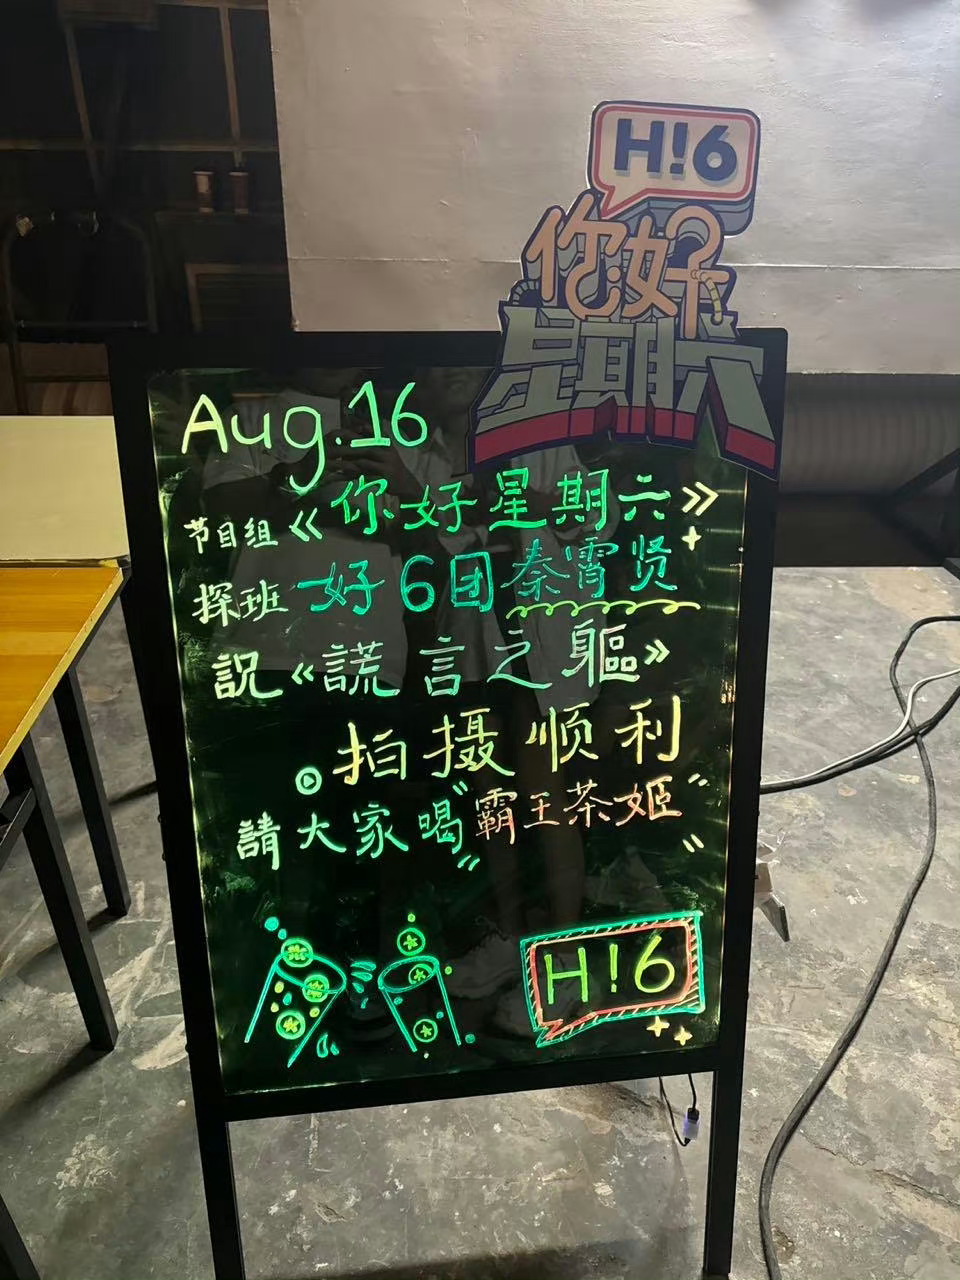 H!6
你好
星期六
Aug.16
节目组《你好星期六》
探班 好6团秦霄贤
説《謊言之軀》
拍摄顺利
請大家喝"霸王茶姬"
H!6